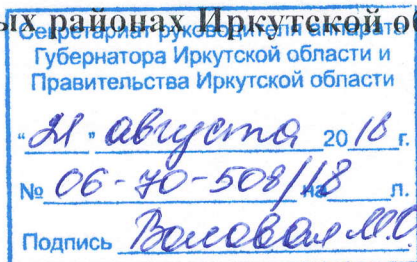 ых районах Иркутской об
Секретариат руководителя аппарата
Губернатора Иркутской области и
Правительства Иркутской области
"21" августа 2018 г.
№ 06-70-508/18 на л.
Подпись Воловая М.С.